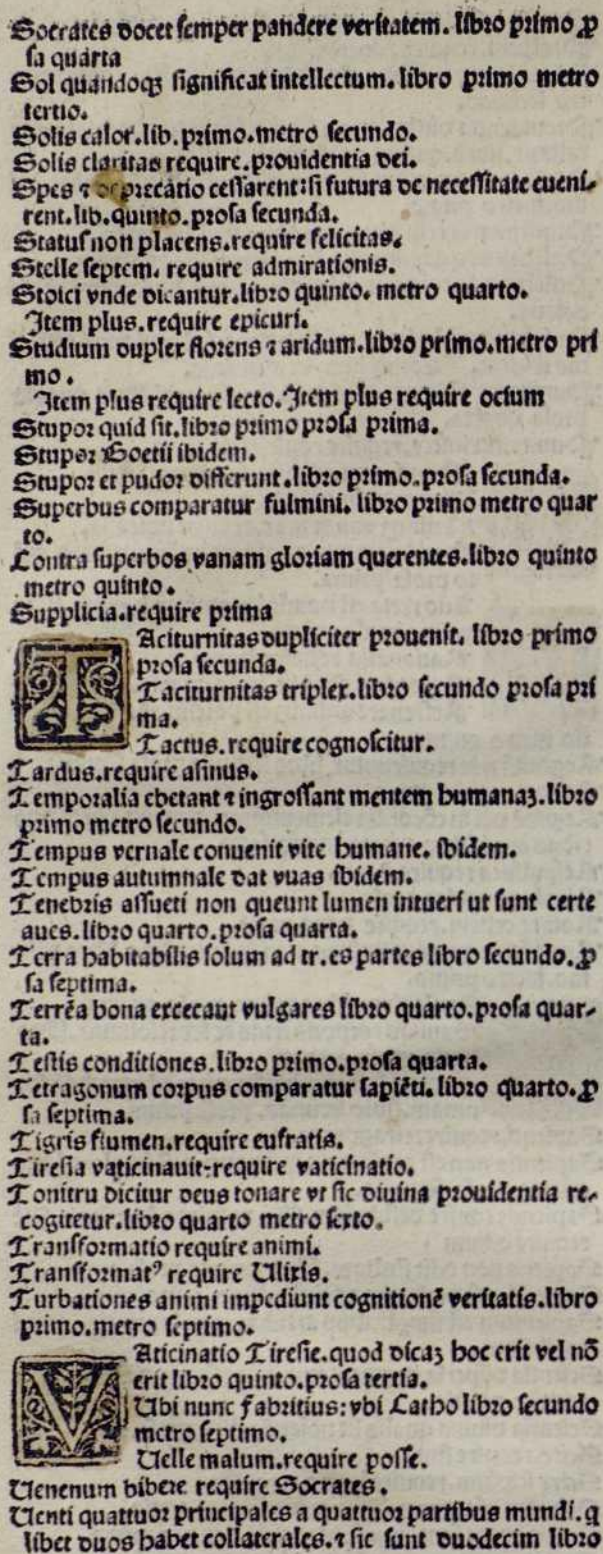 Socrates docet semper pandere veritatem. libro primo ꝓ
sa quarta
Sol quandoqꝫ significat intellectum. libro primo metro
tertio.
Solis calor. lib. primo. metro secundo.
Solis claritas require. prouidentia dei.
Spes ⁊ deprecatio cessarent: si futura de necessitate eueni-
rent. lib. quinto. prosa secunda.
Status non placens. require felicitas.
Stelle septem. require admirationis.
Stoici vnde dicantur. libro quinto. metro quarto.
Item plus. require epicuri.
Studium duplex florens ⁊ aridum. libro primo. metro pri
mo.
Item plus require lecto. Item plus require ocium
Stupor quid sit. libro primo prosa prima.
Stupor Boetii ibidem.
Stupor et pudor differunt. libro primo. prosa secunda.
Superbus comparatur fulmini. libro primo metro quar
to.
Contra superbos vanam gloriam querentes. libro quinto
metro quinto.
Supplicia. require prima
TAciturnitas dupliciter prouenit. libro primo
prosa secunda.
Taciturnitas triplex. libro secundo prosa pri
ma.
Tactus. require cognoscitur.
Tardus. require asinus.
Temporalia ebetant ⁊ ingrossant mentem humanaꝫ. libro
primo metro secundo.
Tempus vernale conuenit vite humane. ibidem.
Tempus autumnale dat vuas ibidem.
Tenebris assueti non queunt lumen intueri ut sunt certe
aues. libro quarto. prosa quarta.
Terra habitabilis solum ad tr.es partes libro secundo. ꝓ
sa septima.
Terrēa bona excecant vulgares libro quarto. prosa quar-
ta.
Testis conditiones. libro primo. prosa quarta.
Tetragonum corpus comparatur sapiēti. libro quarto. ꝓ
sa septima.
Tigris flumen. require eufratis.
Tiresia vaticinauit. require vaticinatio.
Tonitru dicitur deus tonare vt sic diuina prouidentia re-
cogitetur. libro quarto metro sexto.
Transformatio require animi.
Transformatꝰ require Ulixis.
Turbationes animi impediunt cognitionē veritatis. libro
primo. metro septimo.
VAticinatio Tiresie. quod dicaꝫ hoc erit vel nō
erit libro quinto. prosa tertia.
Ubi nunc fabritius: vbi Catho libro secundo
metro septimo.
Uelle malum. require posse.
Uenenum bibere require Socrates.
Uenti quattuor principales a quattuor partibus mundi. q
libet duos habet collaterales. ⁊ sic sunt duodecim libro